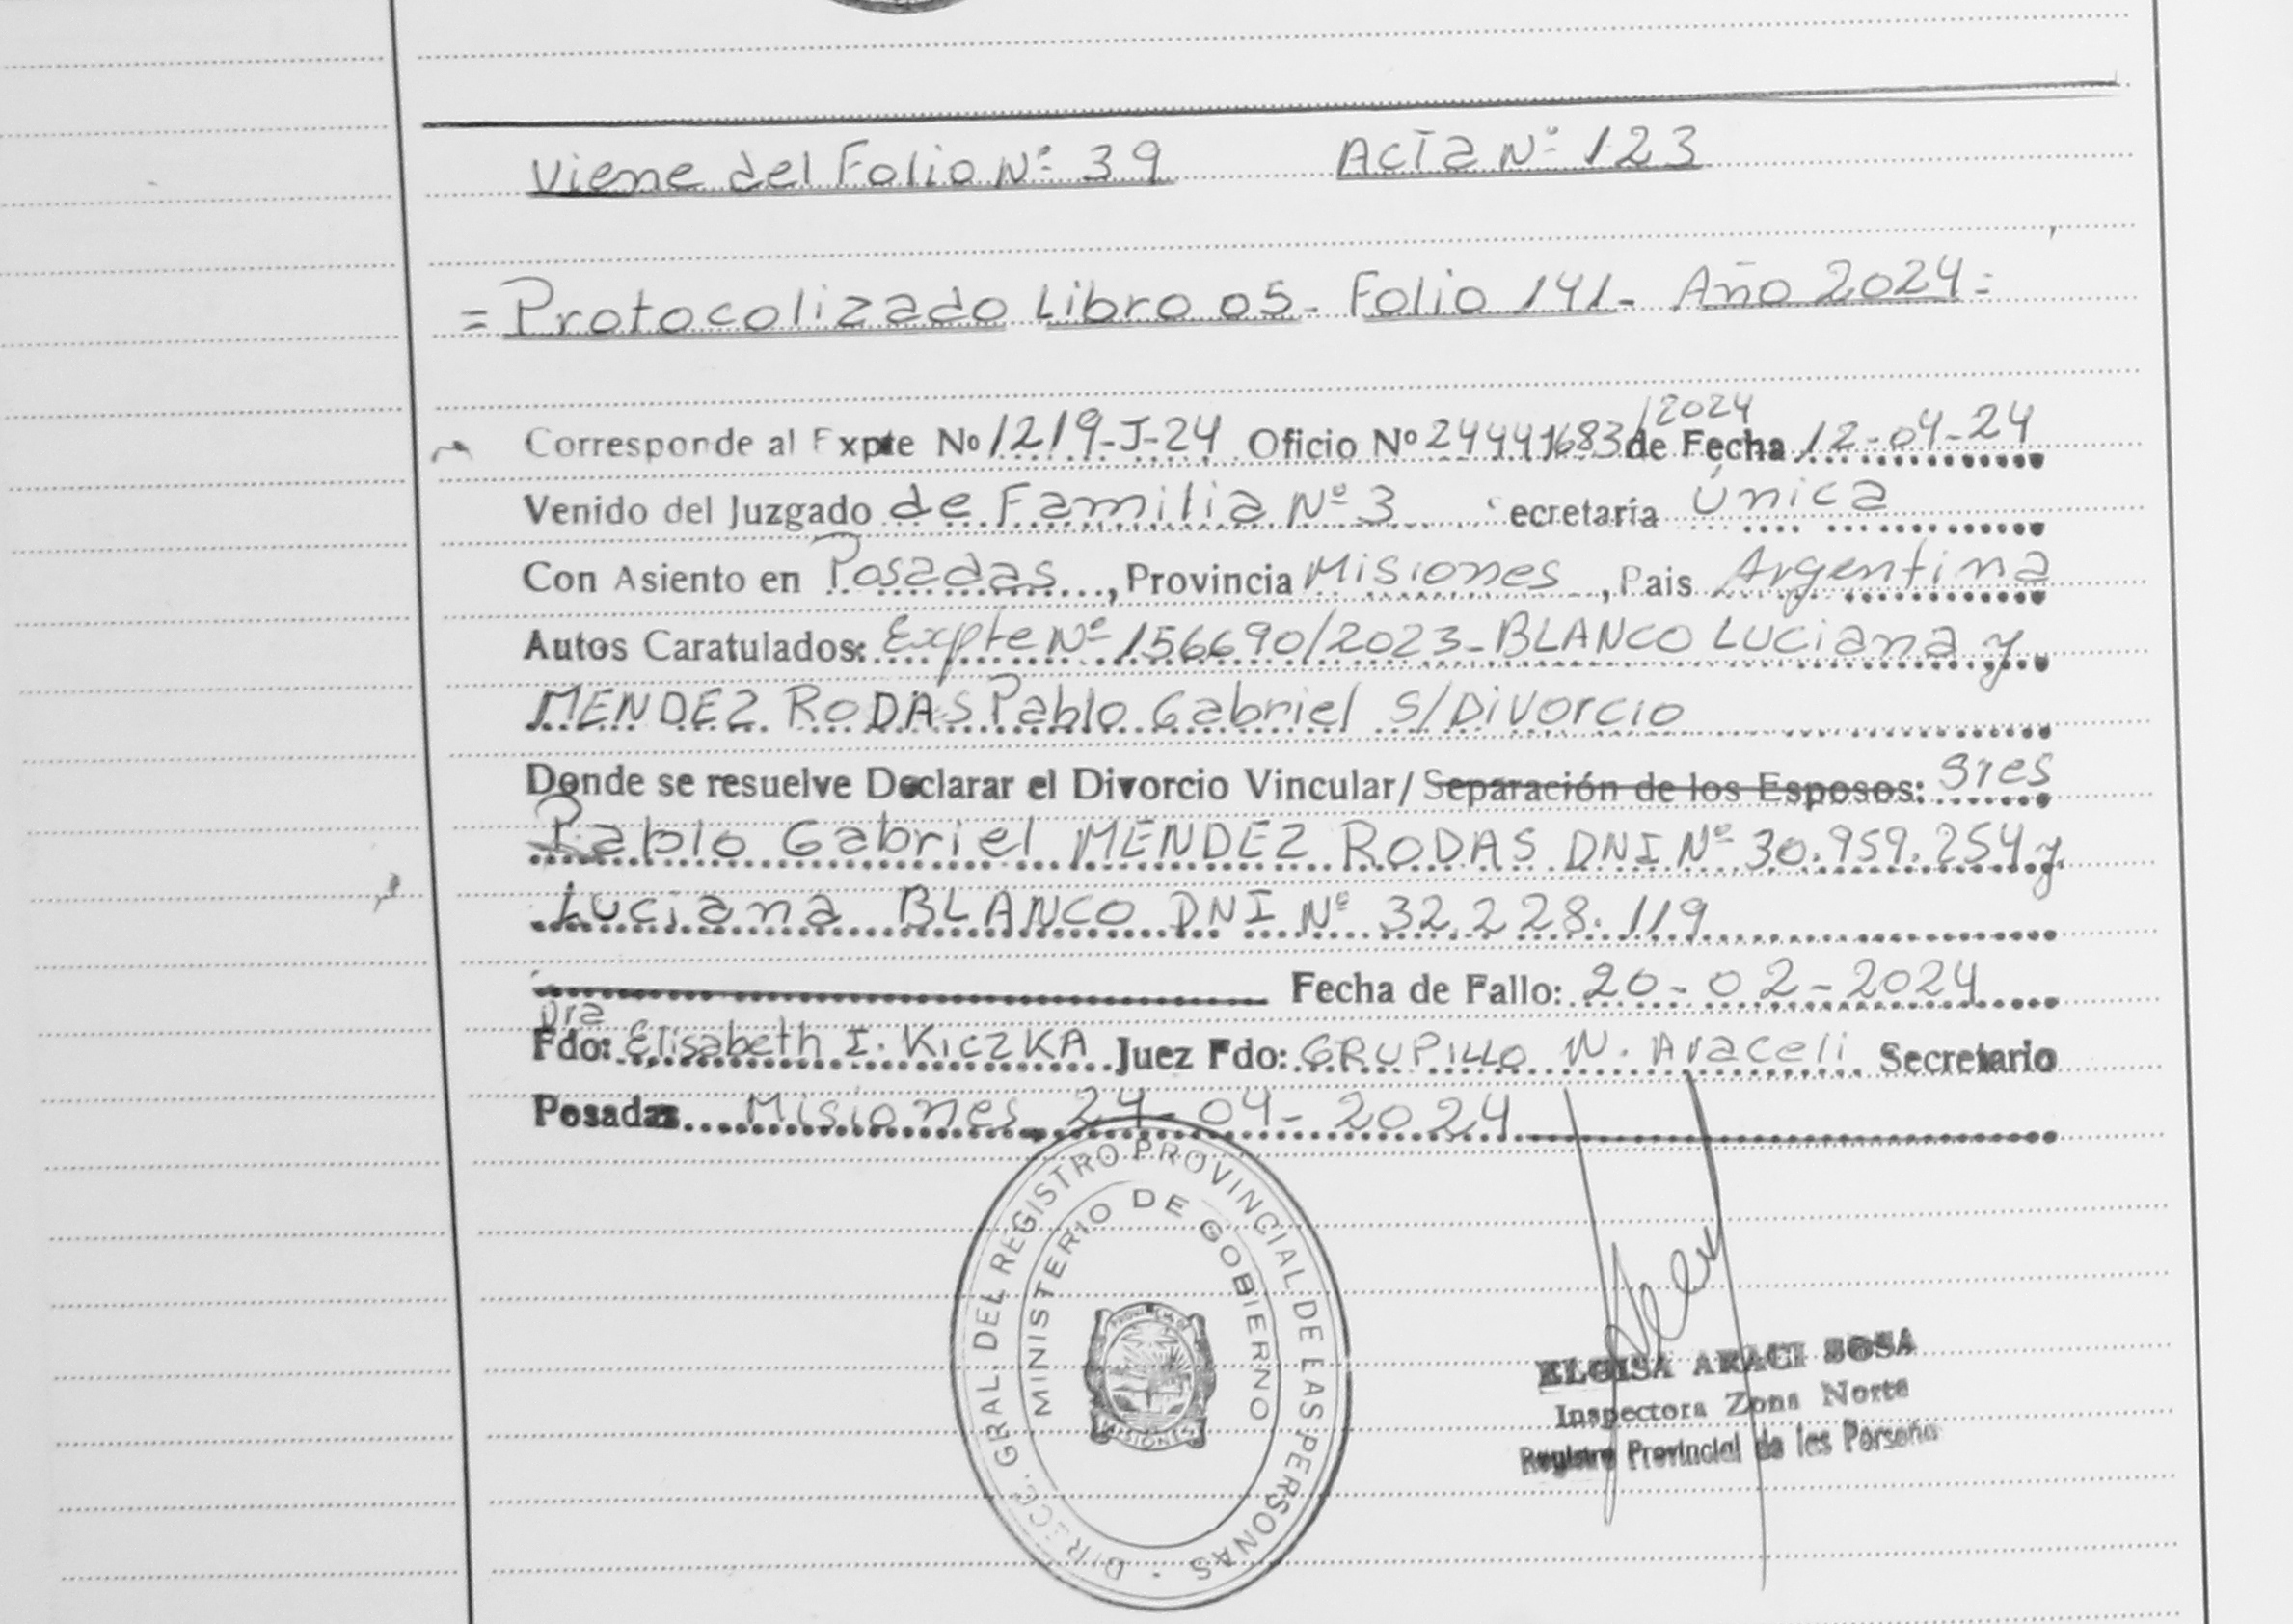 Viene del Folio Nº 39 Acta Nº 123
= Protocolizado Libro 05- Folio 141- Año 2024=
Corresponde al Expte Nº 1219-J-24 Oficio Nº 24441683/2024 de Fecha 12-04-24
Venido del Juzgado de Familia Nº 3 Secretaría Única
Con Asiento en Posadas, Provincia Misiones, Pais Argentina
Autos Caratulados: Expte Nº 156690/2023- BLANCO Luciana y
MENDEZ RODAS Pablo Gabriel S/Divorcio
Donde se resuelve Declarar el Divorcio Vincular/ Separación de los Esposos: Sres
Pablo Gabriel MENDEZ RODAS DNI Nº 30.959.254 y
Luciana BLANCO DNI Nº 32.228.119
Fecha de Fallo: 20-02-2024
Dra
Fdo: Elisabeth I. KICZKA Juez Fdo: GRUPILLO N. Araceli Secretario
Posadas Misiones, 24-04-2024
DIRECC. GRAL. DEL REGISTRO PROVINCIAL DE LAS PERSONAS
MINISTERIO DE GOBIERNO
MISIONES
ELOISA ARACI SOSA
Inspectora Zona Norte
Registro Provincial de las Persona